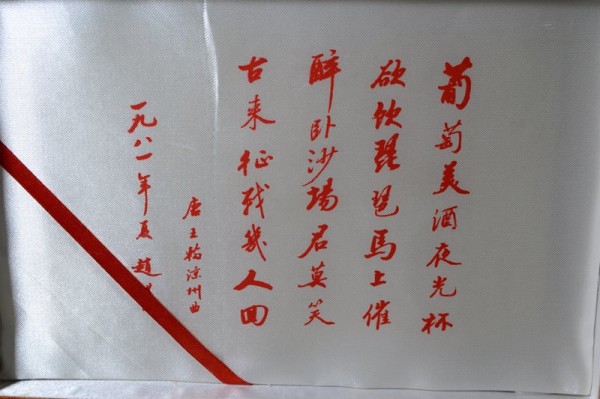 葡萄美酒夜光杯
欲饮琵琶马上催
醉卧沙场君莫笑
古来征战几人回
唐王翰凉州曲
一九八一年夏 赵